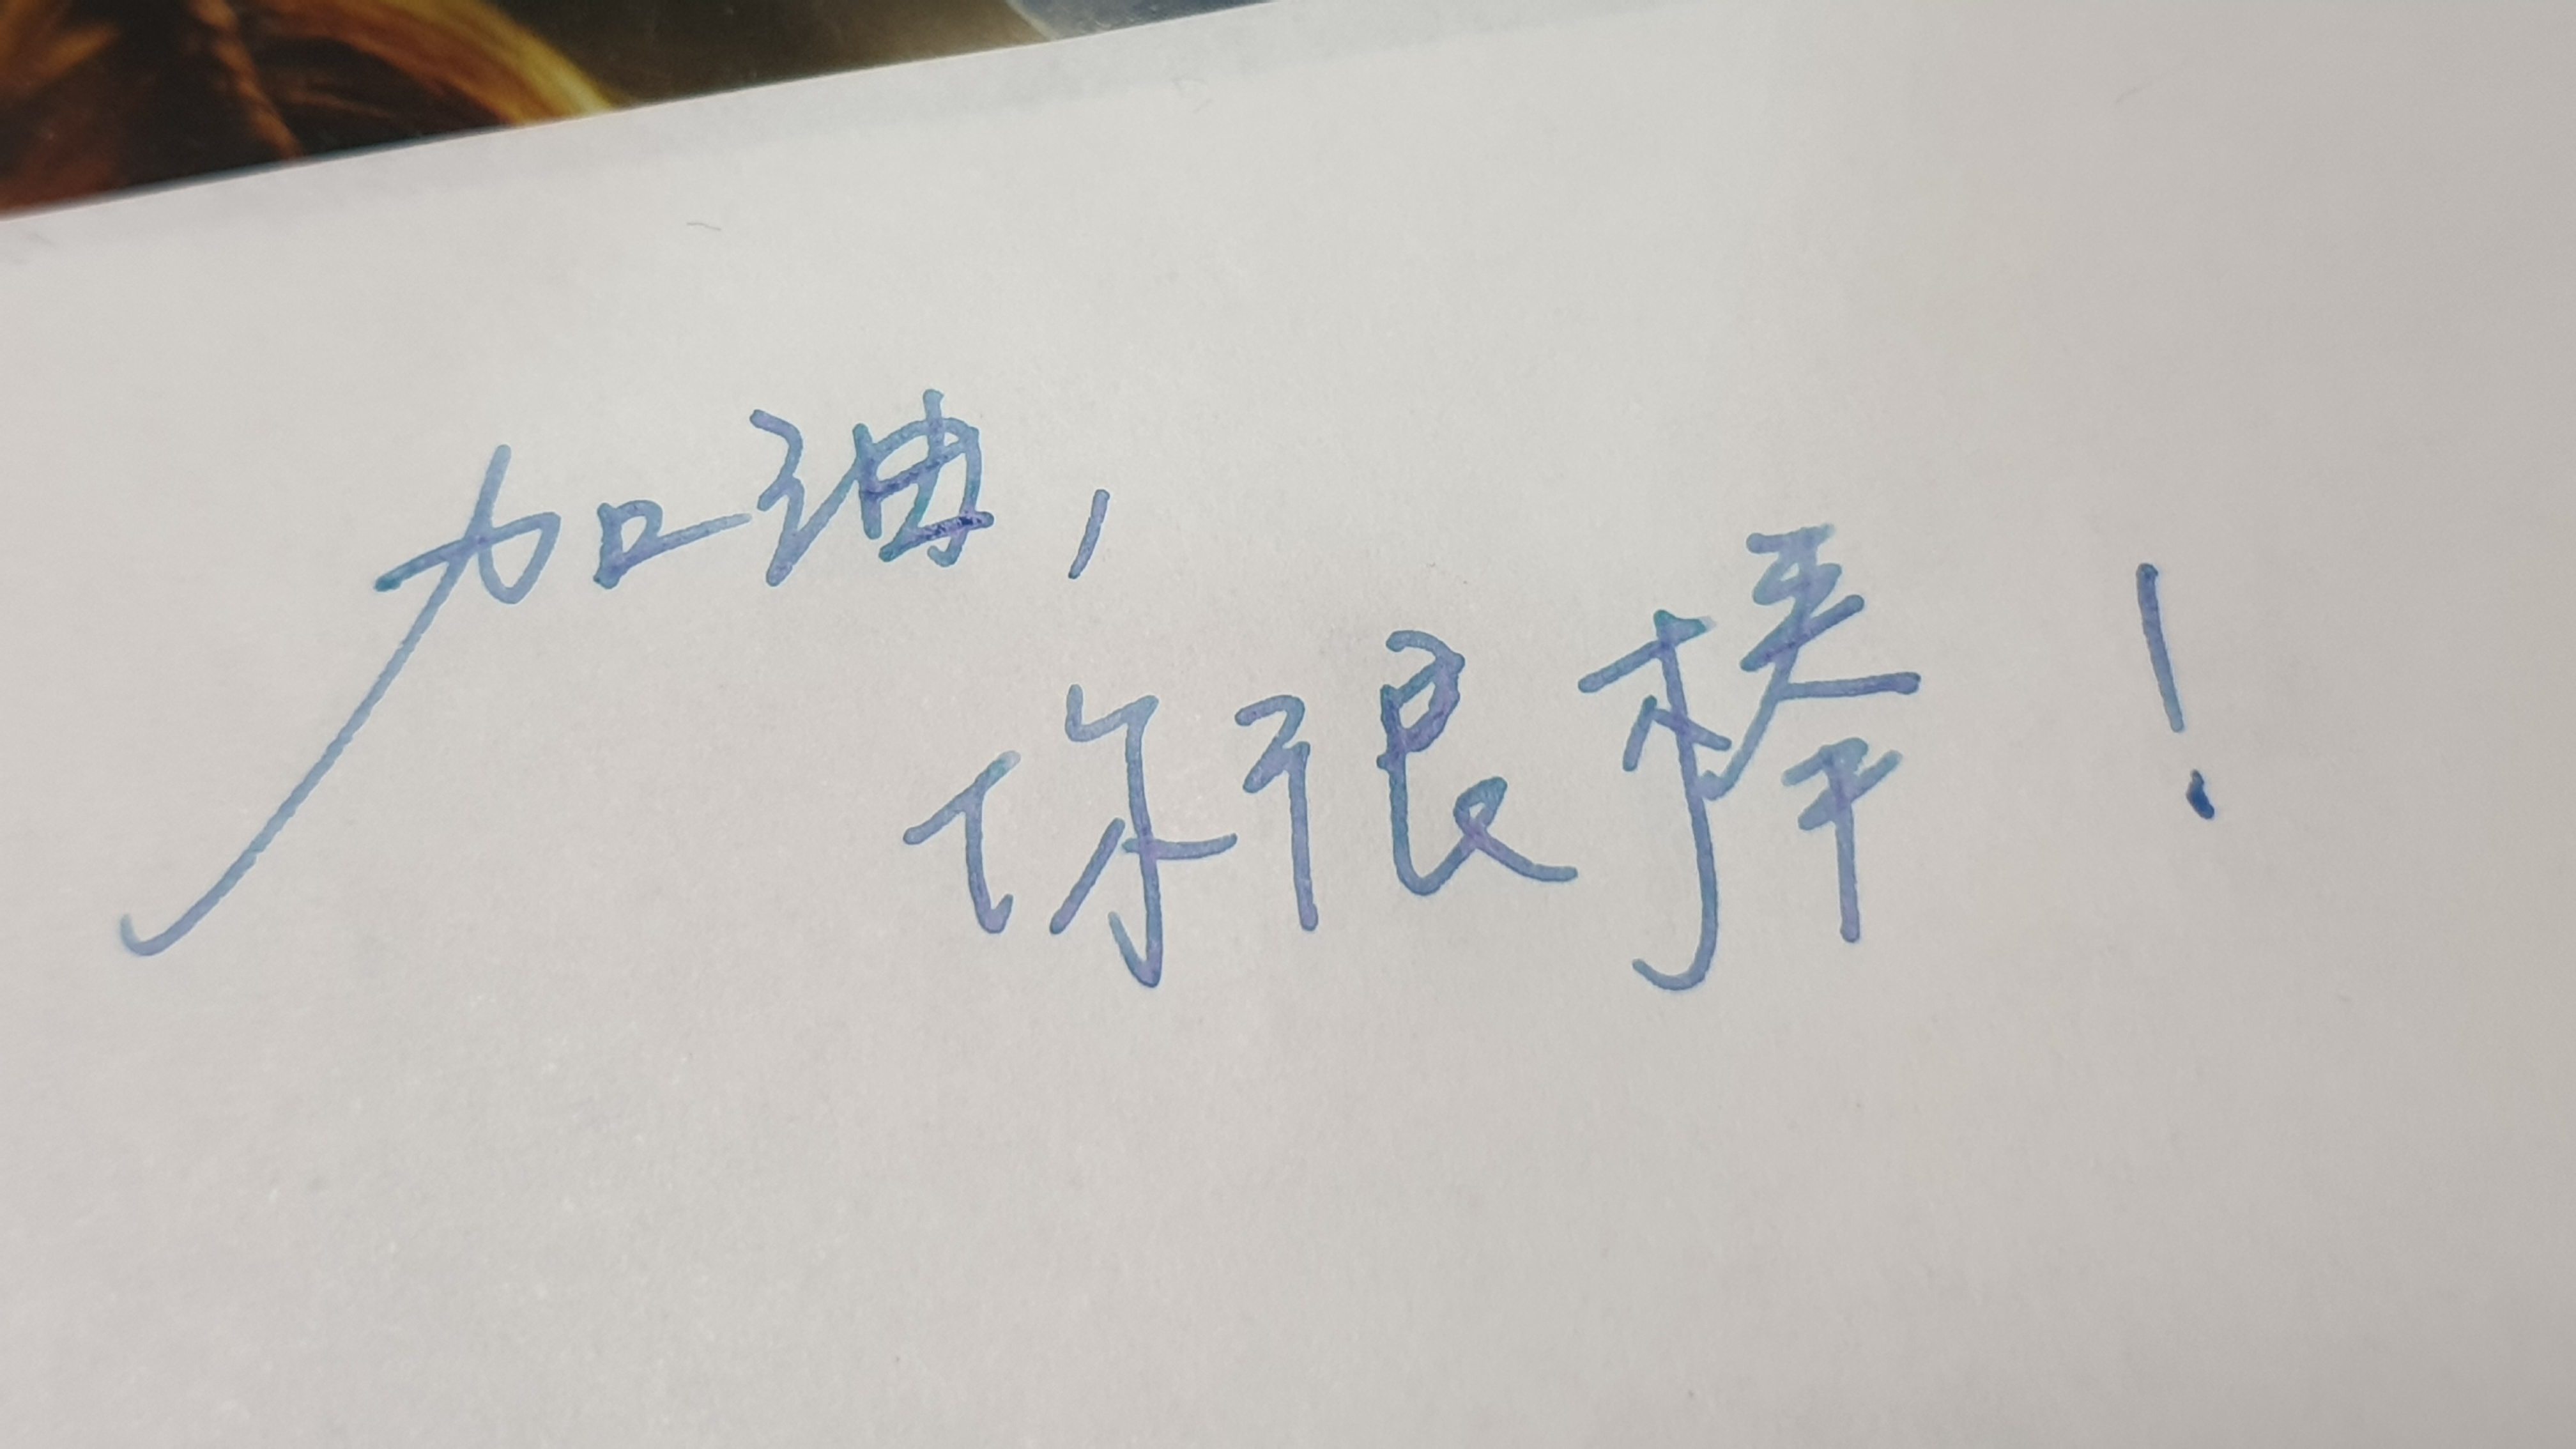 加油，
你很棒！